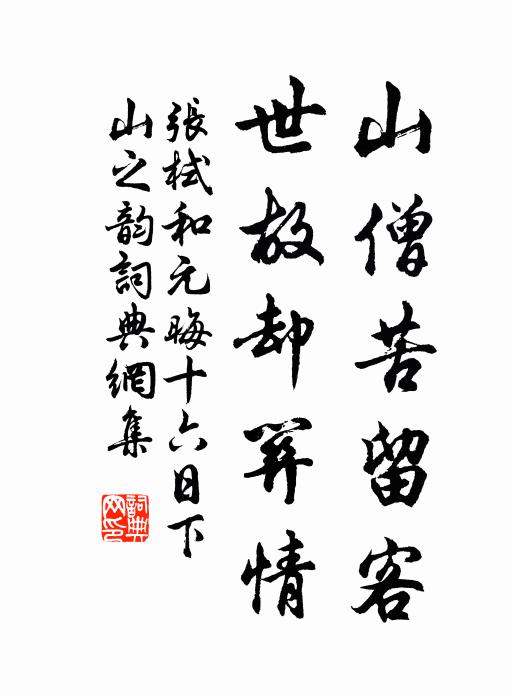 山僧苦留客
世故却關情
張栻和元晦十六日下
山之韵詞典網集
詞典
网印